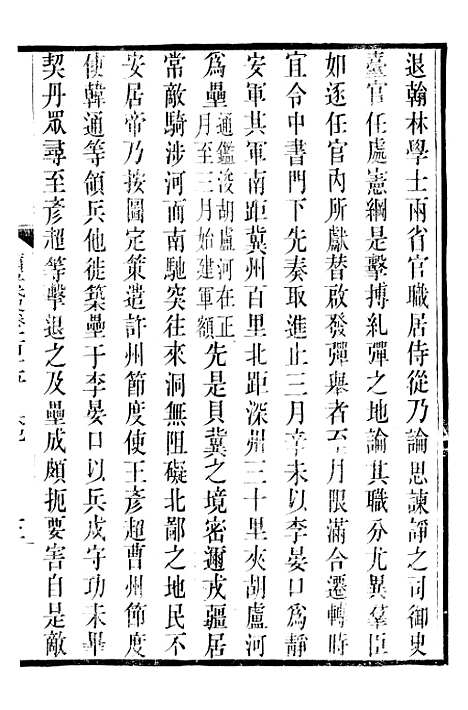 退翰林學士兩省官職居侍從乃論思諫諍之司御史
臺官任處憲綱是擊搏糺彈之地論其職分尤異羣臣
如逐任官內所獻替啟發彈舉者至月限滿合遷轉時
宜令中書門下先奏取進止三月辛未以李晏口爲靜
安軍其軍南距冀州百里北距深州三十里夾胡盧河
爲壘通鑑浚胡盧河在正
月至三月始建軍額先是貝冀之境密邇戎疆居
常敵騎涉河而南馳突往來洞無阻礙北鄙之地民不
安居帝乃按圖定策遣許州節度使王彥超曹州節度
使韓通等領兵他徙築壘于李晏口以兵戍守功未畢
契丹眾尋至彥超等擊退之及壘成頗扼要害自是敵